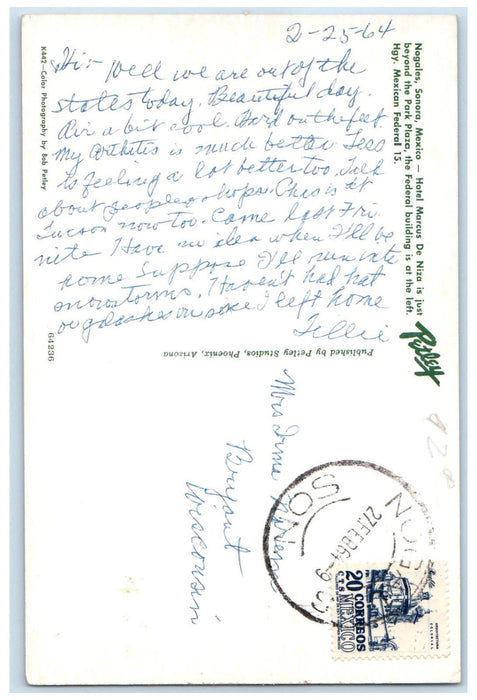 2-25-64
Hi:- Well we are out of the
states today. Beautiful day.
Air a bit cool. Hard on the feet.
My arthritis is much better. Tess
is feeling a lot better too. Talk
about people & shops. Chas is at
Tucson now too. Came last Fri.
nite. Have no idea when I'll be
home. Suppose I'll run into
snowstorms. Haven't had hat
or galoshes on since I left home
Tillie
Mrs Irma
Bryant
Wisconsin
Nogales, Sonora, Mexico — Hotel Marcus De Niza is just
beyond the Park Plaza, the Federal building is at the left.
Hgy. Mexican Federal 15.
Petley
K442—Color Photography by Bob Petley
Published by Petley Studios, Phoenix, Arizona
64236
SON
27 FEB 64
ARQUITECTURA
COLONIAL
20 CORREOS
CTS MEXICO